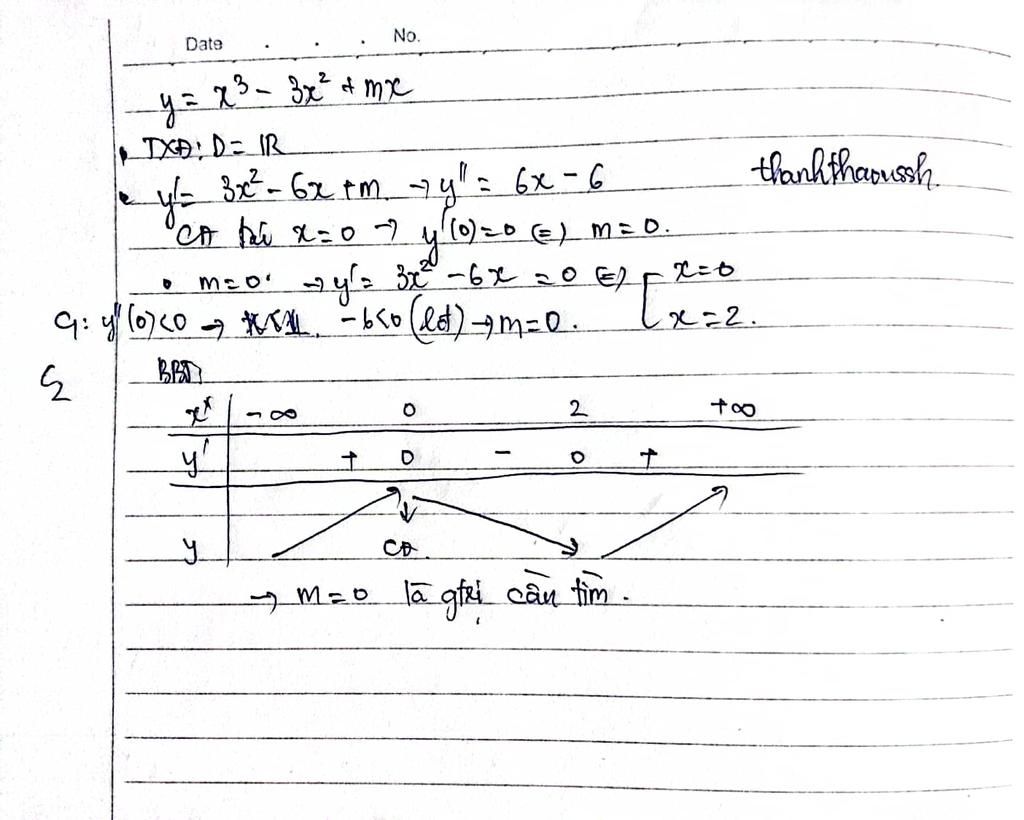 Date . . . No.
y = x³ - 3x² + mx
• TXĐ: D = ℝ
• y' = 3x² - 6x + m → y'' = 6x - 6
thanhthaoussh.
CĐ tại x = 0 → y'(0) = 0 ⇔ m = 0.
• m = 0. → y' = 3x² - 6x = 0 ⇔ [ x = 0
x = 2.
C1: y''(0) < 0 → -6 < 0 (lđ) → m = 0.
C2 BBT
x | -∞ 0 2 +∞
y' | + 0 - 0 +
y
CĐ.
→ m = 0 là gtrị cần tìm.